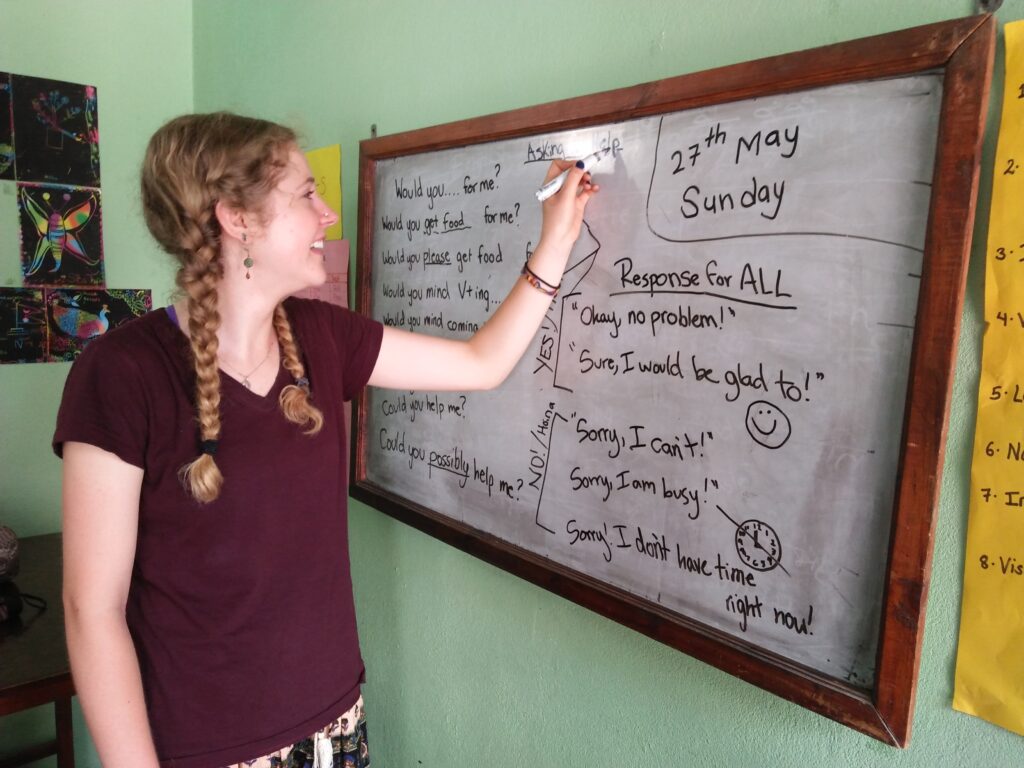 Asking
Would you.... for me?
Would you get food for me?
Would you please get food
Would you mind V+ing...
Would you mind coming
Could you help me?
Could you possibly help me?
27th May
Sunday
Response for ALL
YES!/
"Okay, no problem!"
"Sure, I would be glad to!"
NO!/Hana
"Sorry, I can't!"
Sorry, I am busy!"
Sorry! I don't have time
right now!
2.
3.
4.
5.
6.
7.
8. Vis